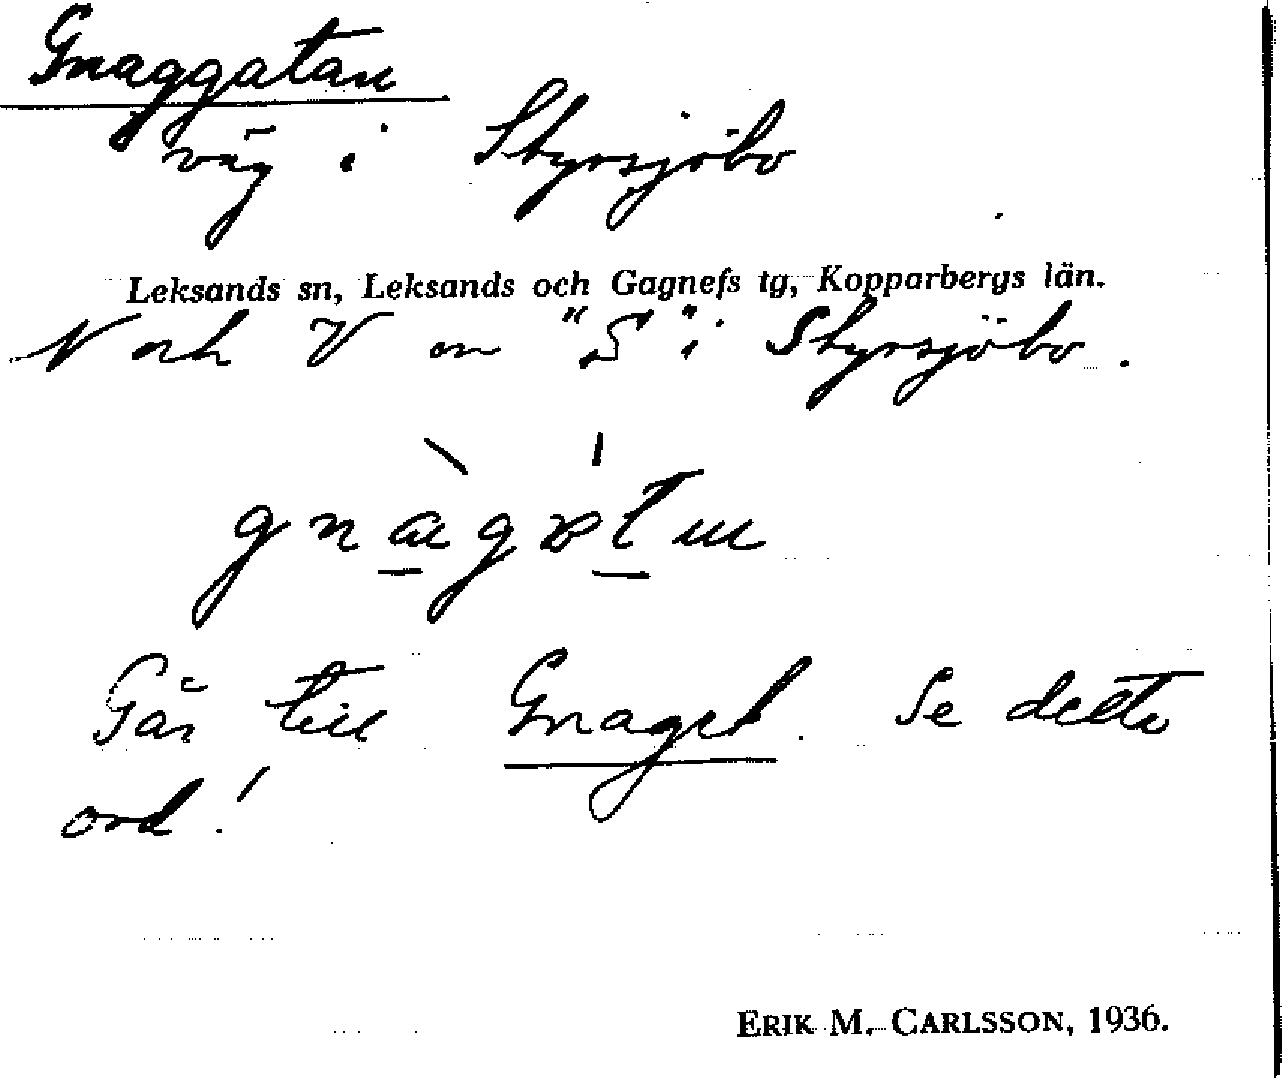 Gnaggatan
väg i Styrsjöbo
Leksands sn, Leksands och Gagnefs tg, Kopparbergs län.
N och V om "S" i Styrsjöbo.
Går till Gnaget. Se detta
ord!
ERIK M. CARLSSON, 1936.